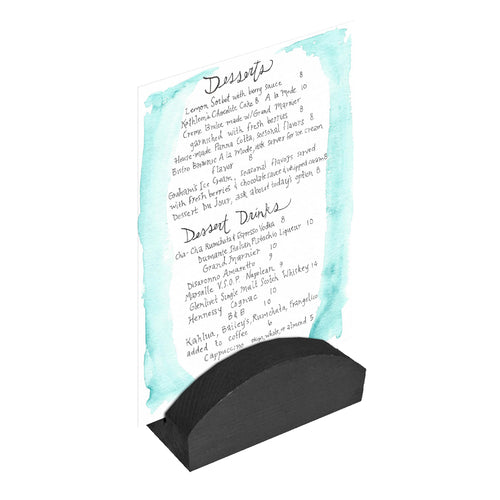 Desserts
Lemon Sorbet with berry sauce 8
Kathleen's Chocolate Cake 8 A la Mode 10
Creme Brulee made w/Grand Marnier
garnished with fresh berries 8
House-made Panna Cotta, seasonal flavors 8
Bistro Brownie A la Mode, ask server for ice cream
flavor 8
Graham's Ice Cream, seasonal flavors served
with fresh berries & chocolate sauce & whipped cream 8
Dessert Du Jour, ask about today's option 8
Dessert Drinks
Cha-Cha Rumchata & Espresso Vodka 8
Dumante Italian Pistachio Liqueur 10
Grand Marnier 10
Disaronno Amaretto 9
Marsalle V.S.O.P Napolean 9
Glenlivet Single Malt Scotch Whiskey 14
Hennessy Cognac 10
B&B 10
Kahlua, Bailey's, Rumchata, Frangelico
added to coffee 6
Cappuccino whole, or almond 5